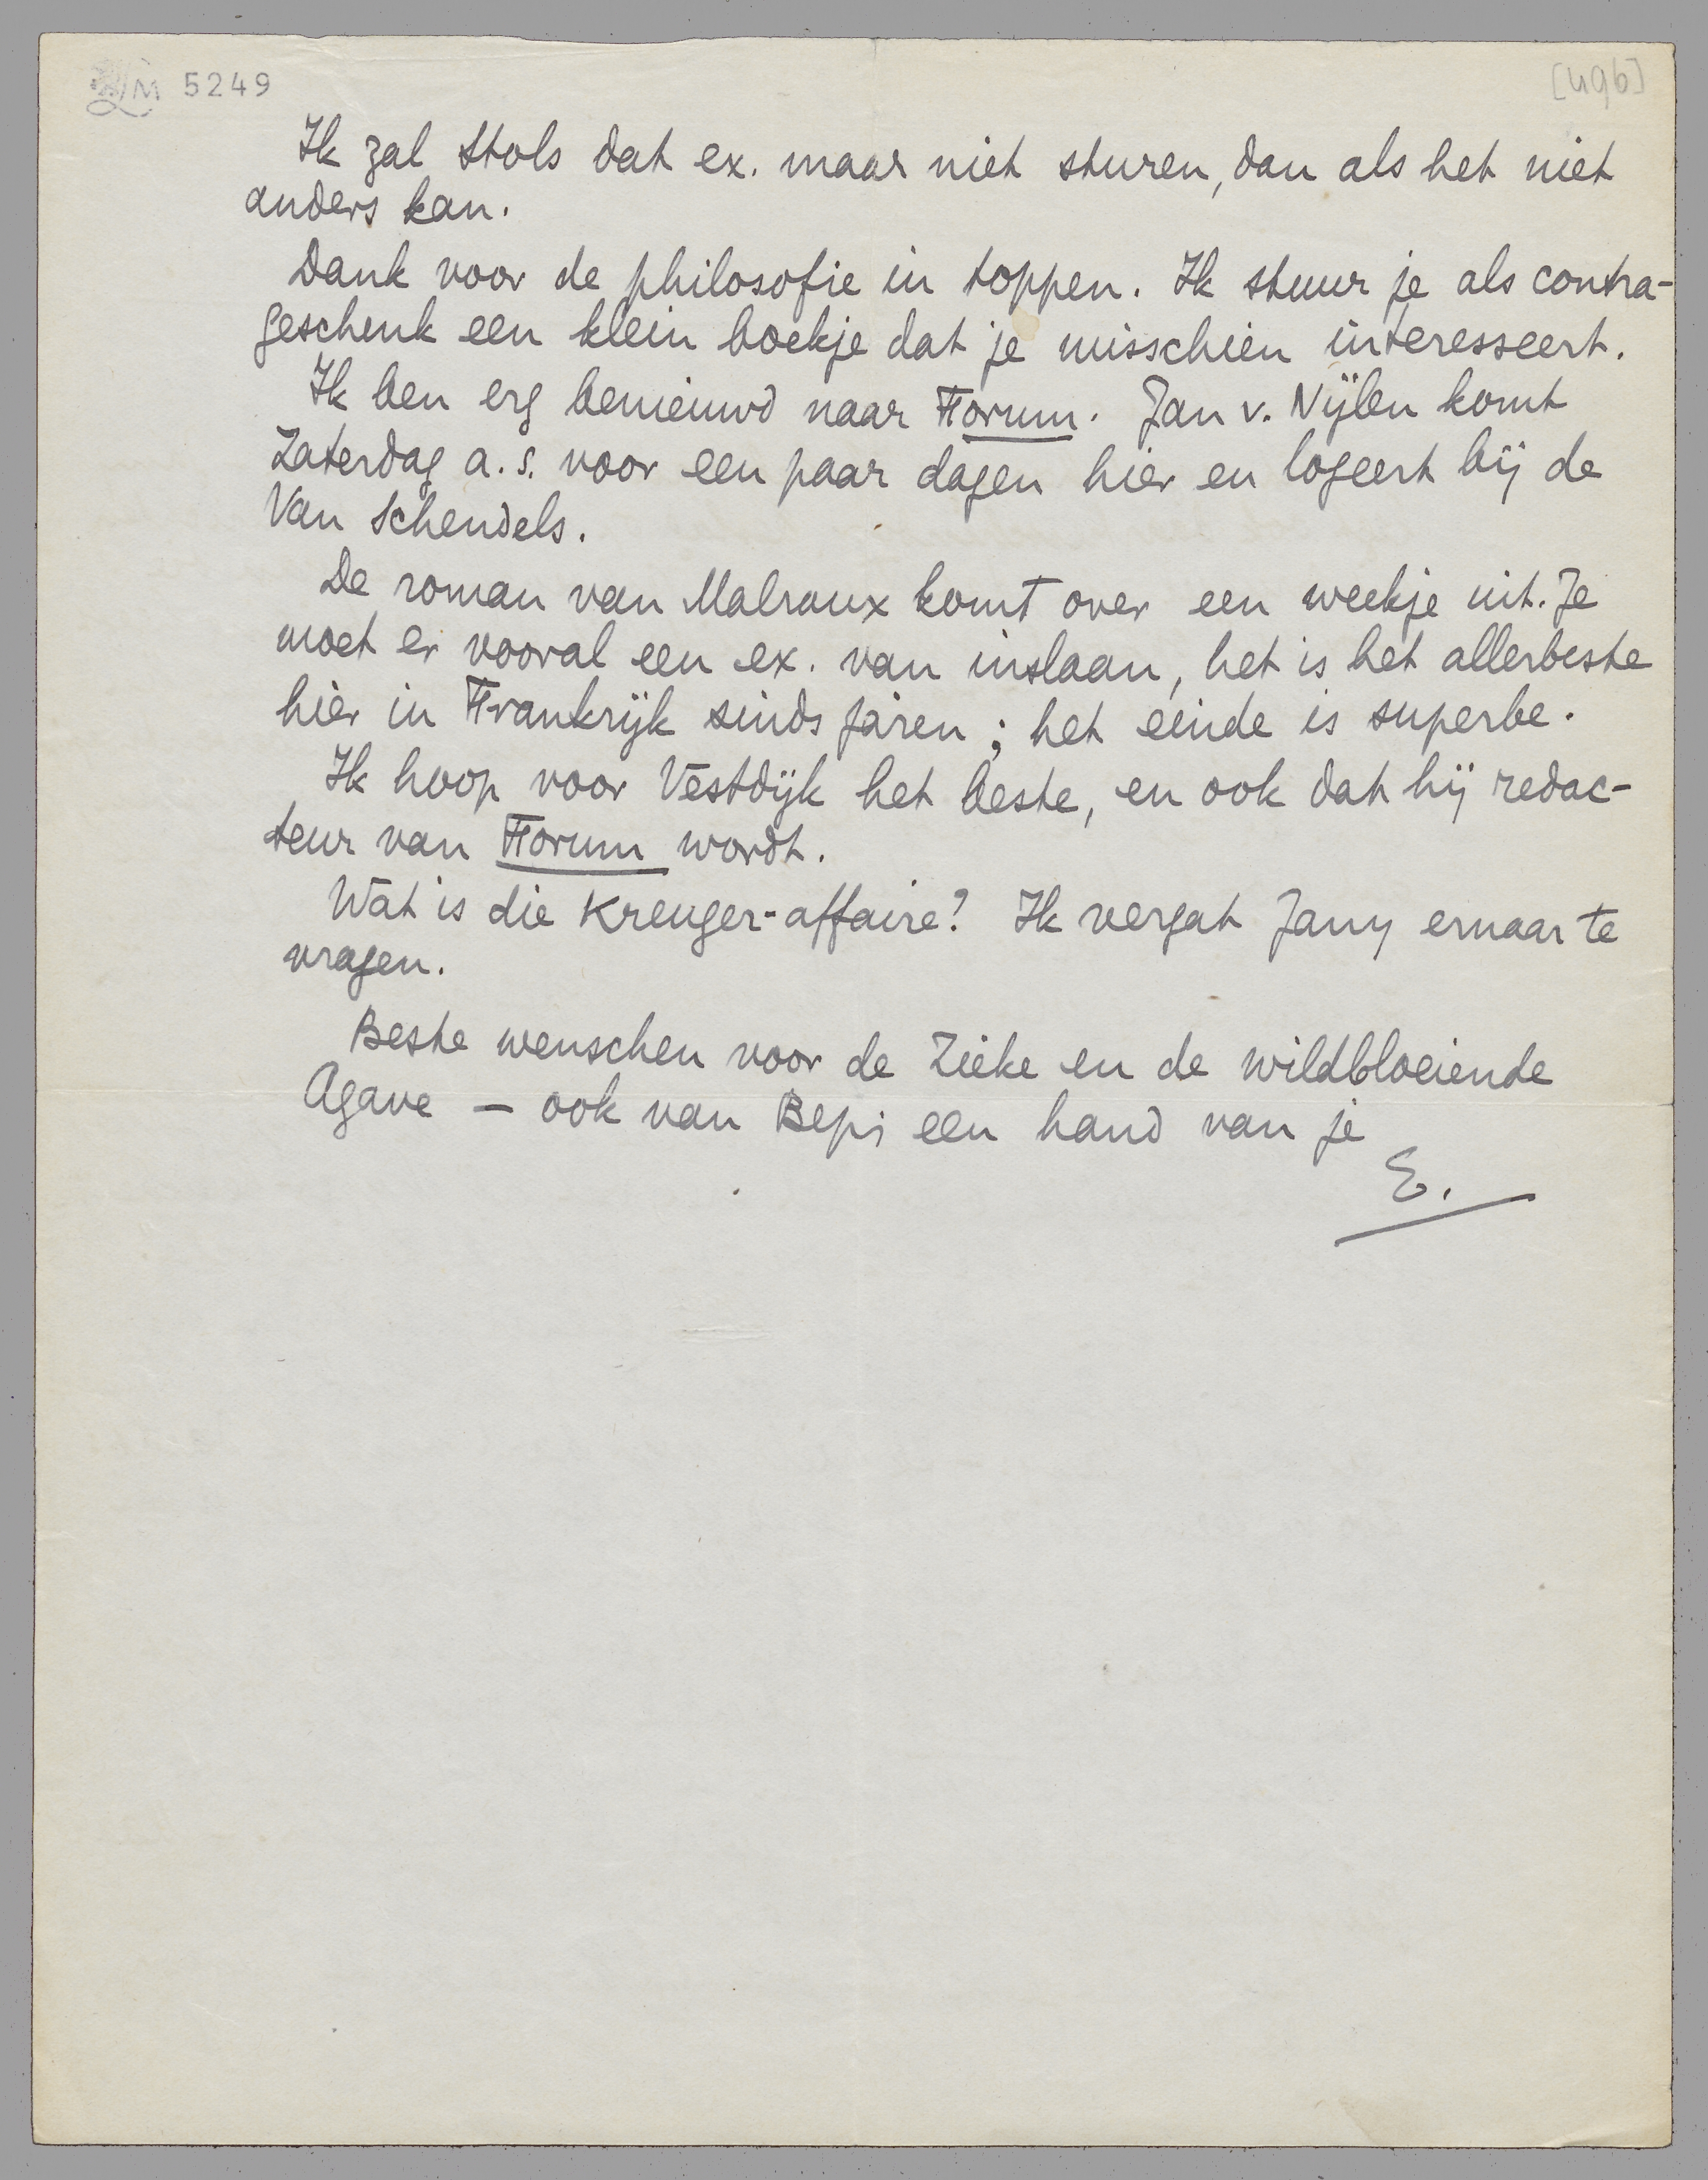 LM 5249
[49b]
Ik zal Stols dat ex. maar niet sturen, dan als het niet
anders kan.
Dank voor de philosofie in toppen. Ik stuur je als contra-
geschenk een klein boekje dat je misschien interesseert.
Ik ben erg benieuwd naar Forum. Jan v. Nijlen komt
Zaterdag a.s. voor een paar dagen hier en logeert bij de
Van Schendels.
De roman van Malraux komt over een weekje uit. Je
moet er vooral een ex. van inslaan, het is het allerbeste
hier in Frankrijk sinds jaren; het einde is superbe.
Ik hoop voor Vestdijk het beste, en ook dat hij redac-
teur van Forum wordt.
Wat is die Kreuger-affaire? Ik vergat Jany ernaar te
vragen.
Beste wenschen voor de Zieke en de wildbloeiende
Agave — ook van Bep; een hand van je
E.